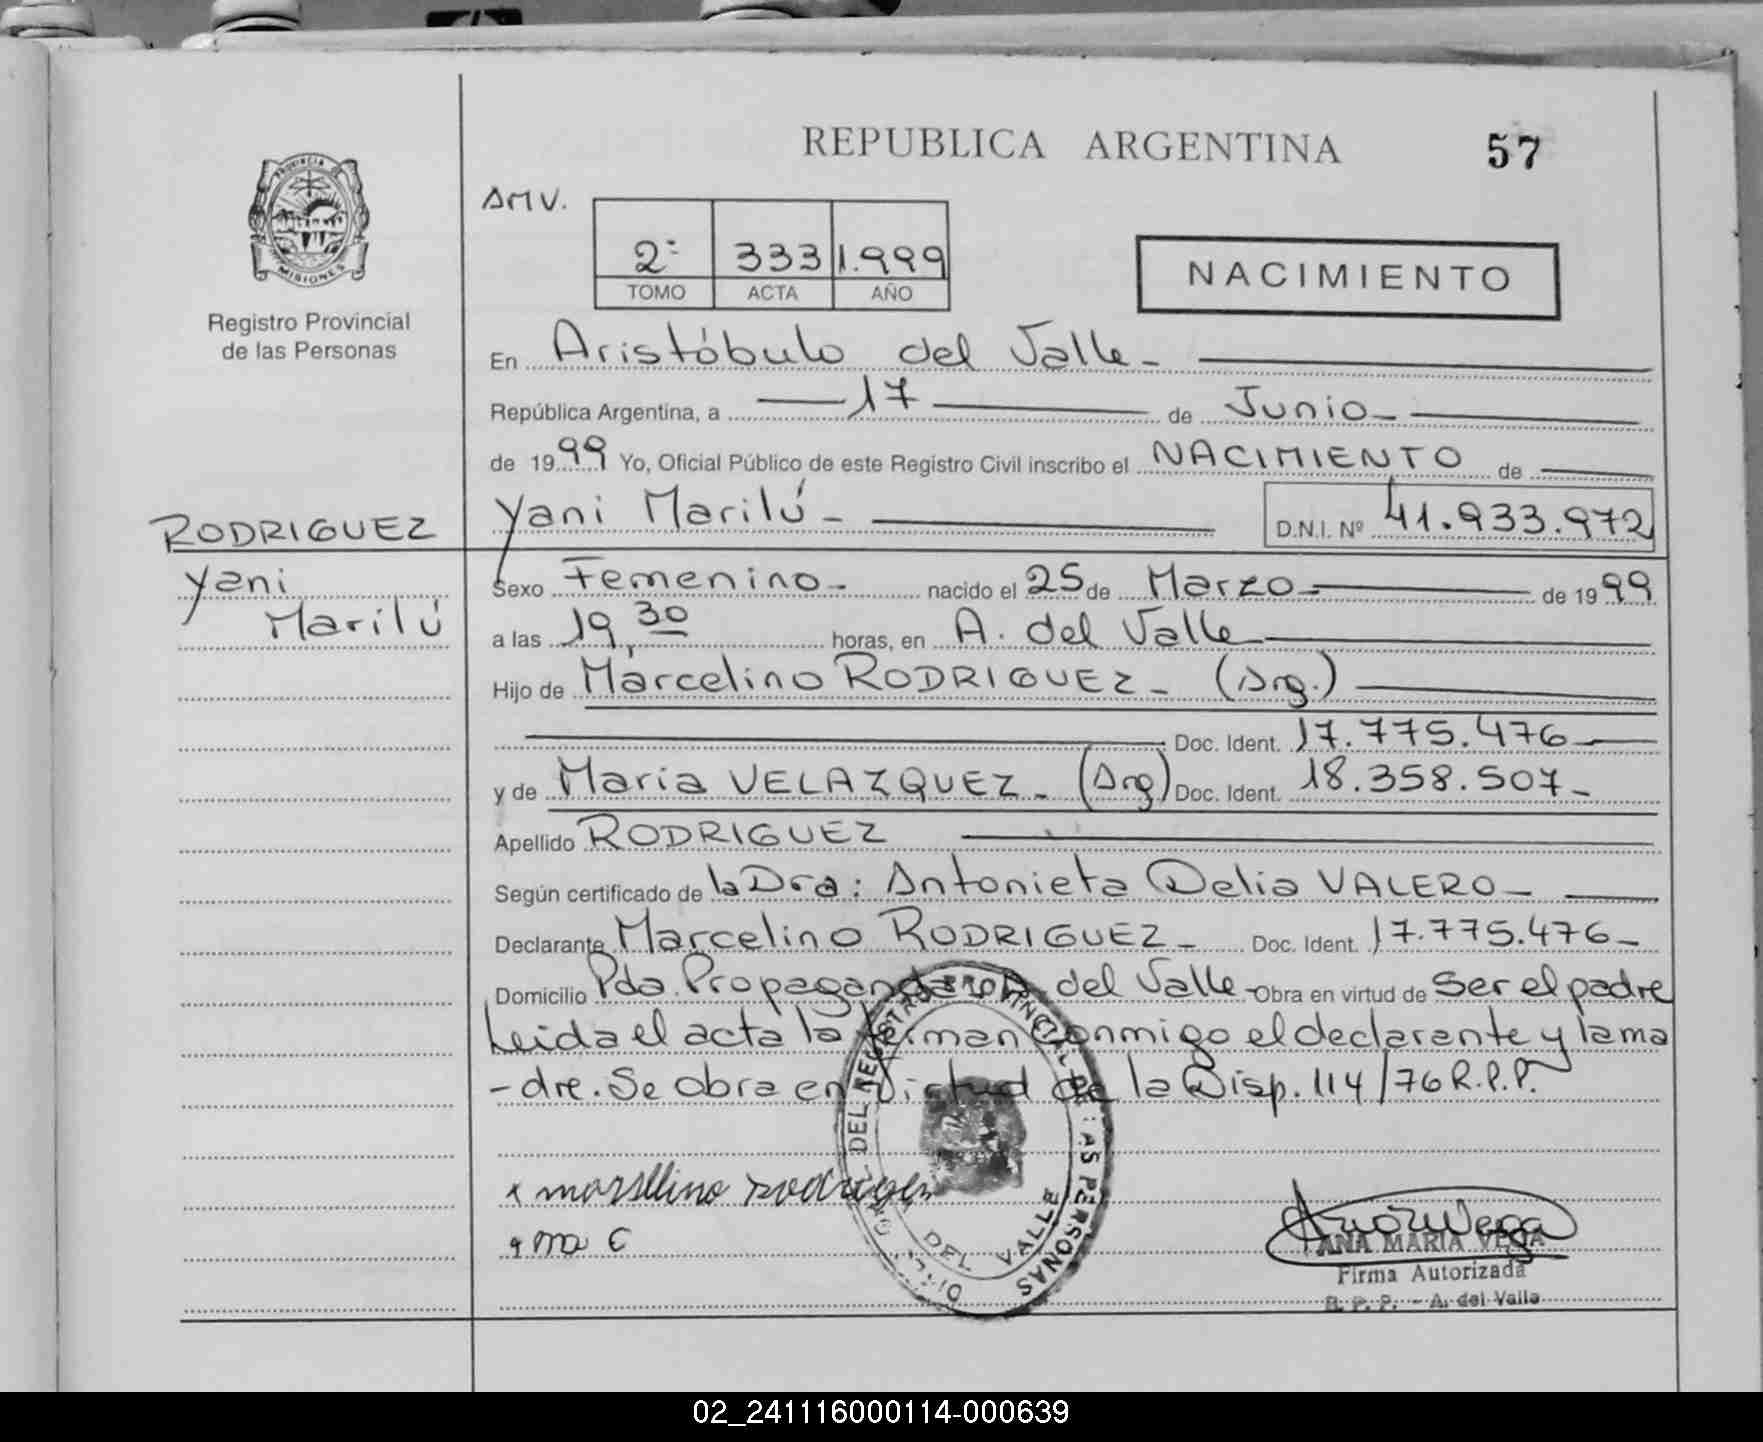 REPUBLICA ARGENTINA
57
PROVINCIA
MISIONES
Registro Provincial
de las Personas
AMV.
2º 333 1.999
TOMO ACTA AÑO
NACIMIENTO
En Aristóbulo del Valle-
República Argentina, a 17 de Junio-
de 1999 Yo, Oficial Público de este Registro Civil inscribo el NACIMIENTO de
RODRIGUEZ
Yani
Marilú
Yani Marilú- D.N.I. Nº 41.933.972
Sexo Femenino- nacido el 25 de Marzo- de 1999
a las 19,30 horas, en A. del Valle-
Hijo de Marcelino RODRIGUEZ- (Arg.)
Doc. Ident. 17.775.476-
y de Maria VELAZQUEZ- (Arg) Doc. Ident. 18.358.507-
Apellido RODRIGUEZ
Según certificado de la Dra: Antonieta Delia VALERO-
Declarante Marcelino RODRIGUEZ- Doc. Ident. 17.775.476-
Domicilio Pda. Propaganda A. del Valle- Obra en virtud de Ser el padre
Leida el acta la firman conmigo el declarante y la ma
-dre. Se obra en virtud de la Disp. 114/76 R.P.P.
DEL REGISTRO PROVINCIAL DE LAS PERSONAS
DEL VALLE
x marsllino rodriguez
ANA MARIA VEGA
Firma Autorizada
R. P. P. - A. del Valle
02_241116000114-000639